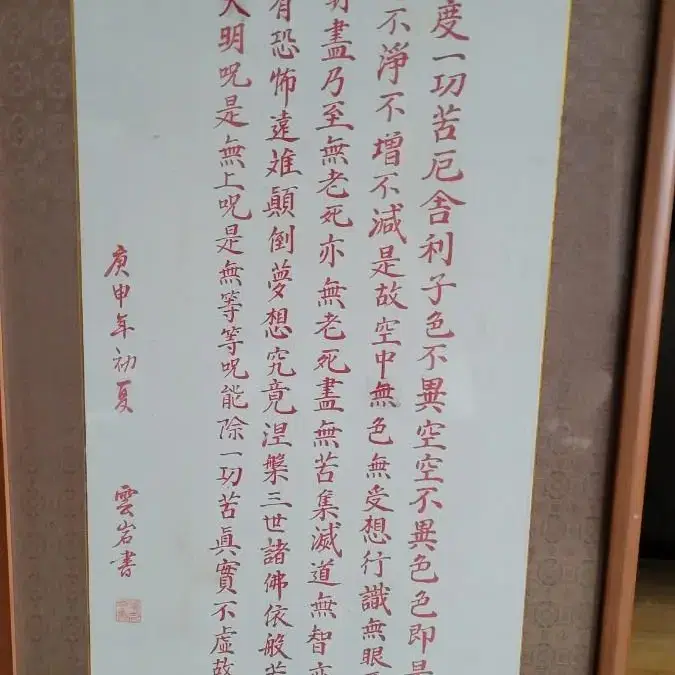 度一切苦厄舍利子色不異空空不異色色即是
不淨不增不減是故空中無色無受想行識無眼
明盡乃至無老死亦無老死盡無苦集滅道無智亦
有恐怖遠離顛倒夢想究竟涅槃三世諸佛依般若
大明呪是無上呪是無等等呪能除一切苦眞實不虛故
庚申年初夏
雲岩書